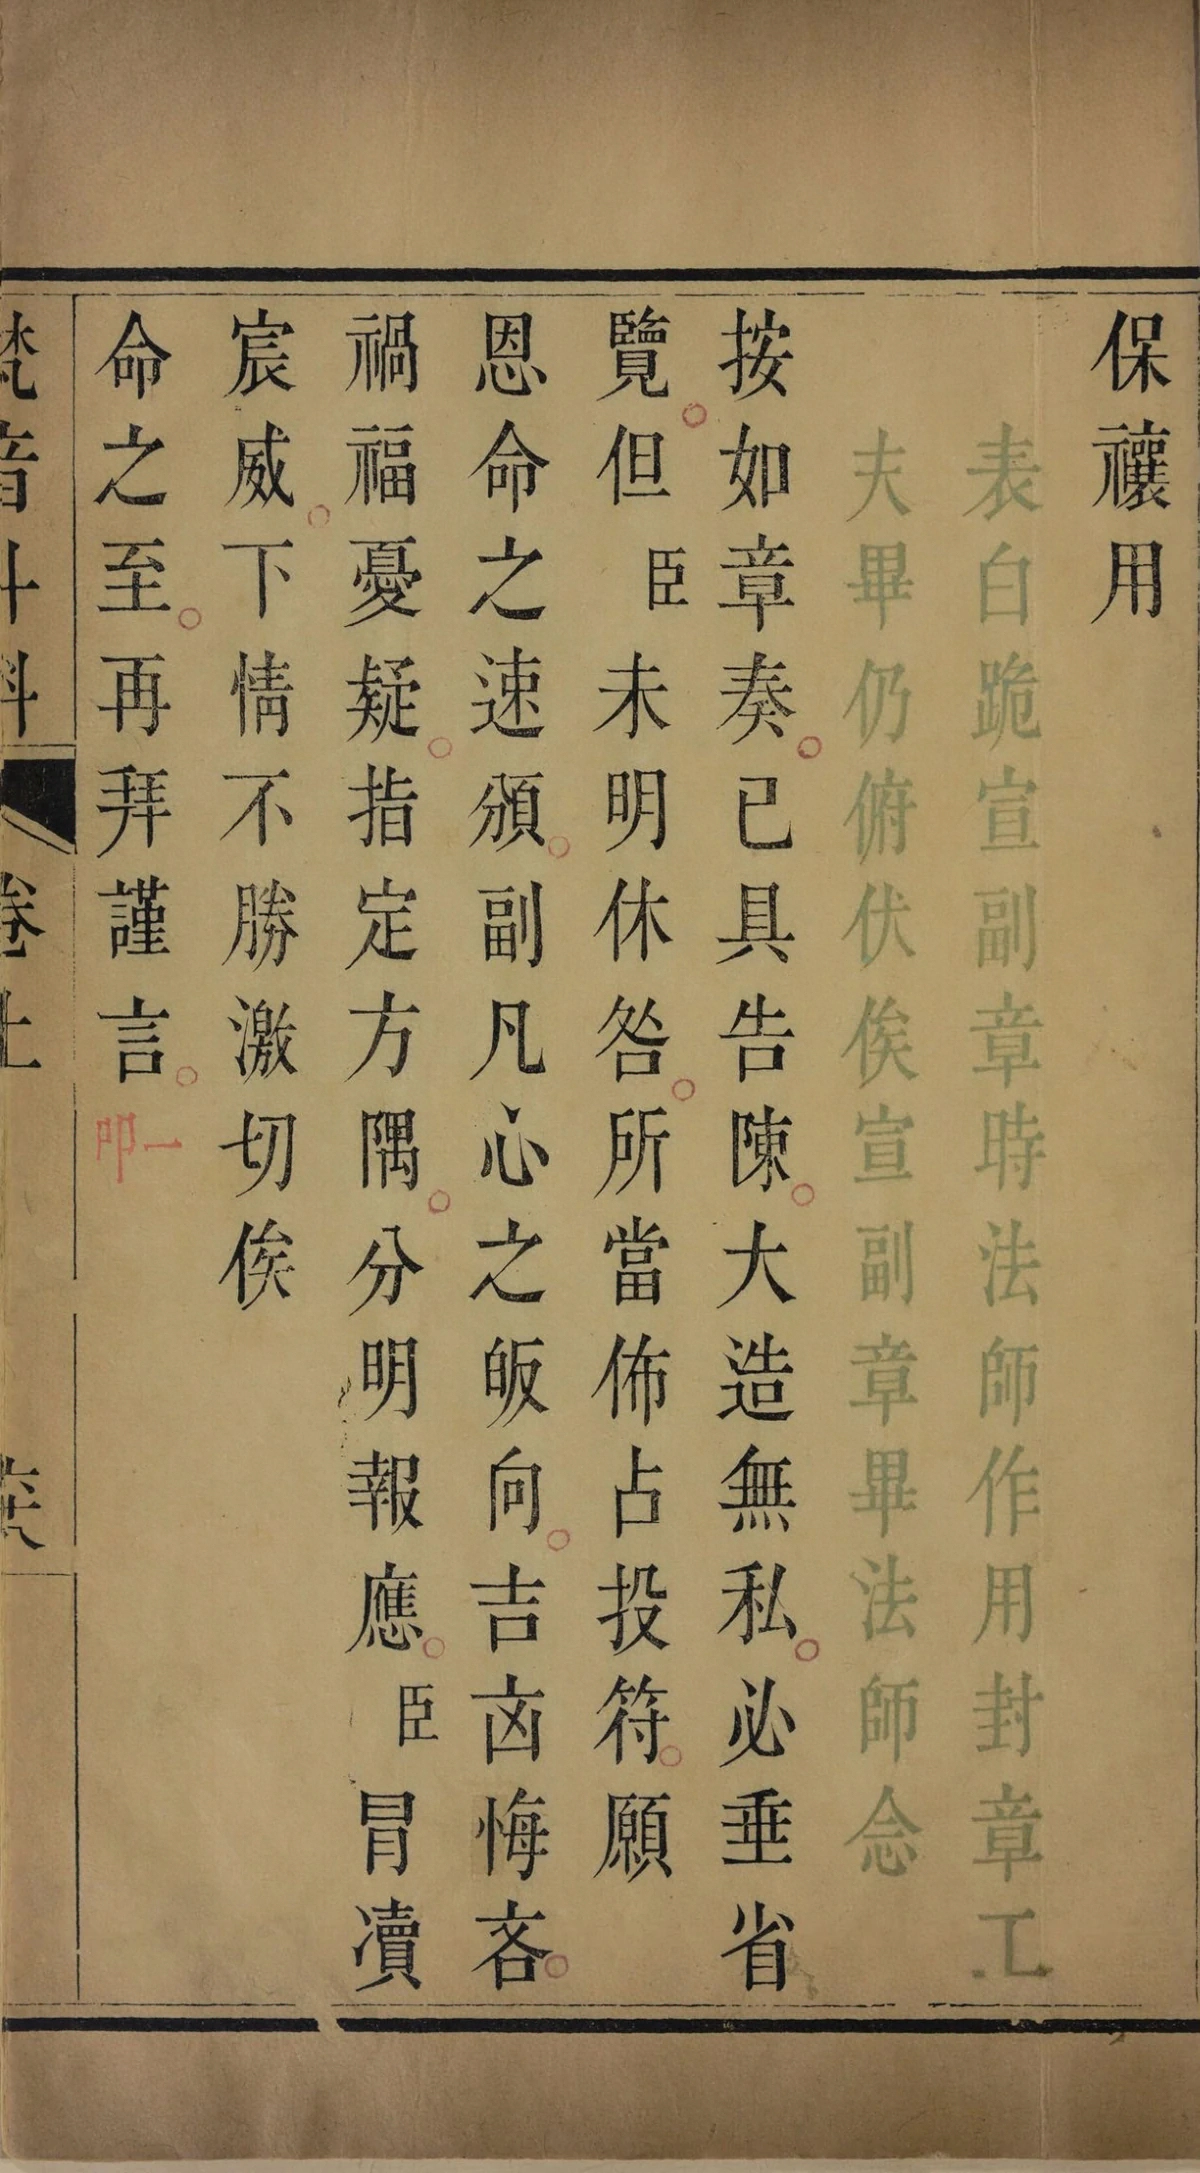 保禳用
表白跪宣副章時法師作用封章工
夫畢仍俯伏俟宣副章畢法師念
按如章奏。已具告陳。大造無私。必垂省
覽。但臣未明休咎。所當佈占投符。願
恩命之速頒。副凡心之皈向。吉凶悔吝。
禍福憂疑。指定方隅。分明報應。臣冒瀆
宸威。下情不勝激切俟
命之至。再拜謹言。一叩
梵音斗科 卷上